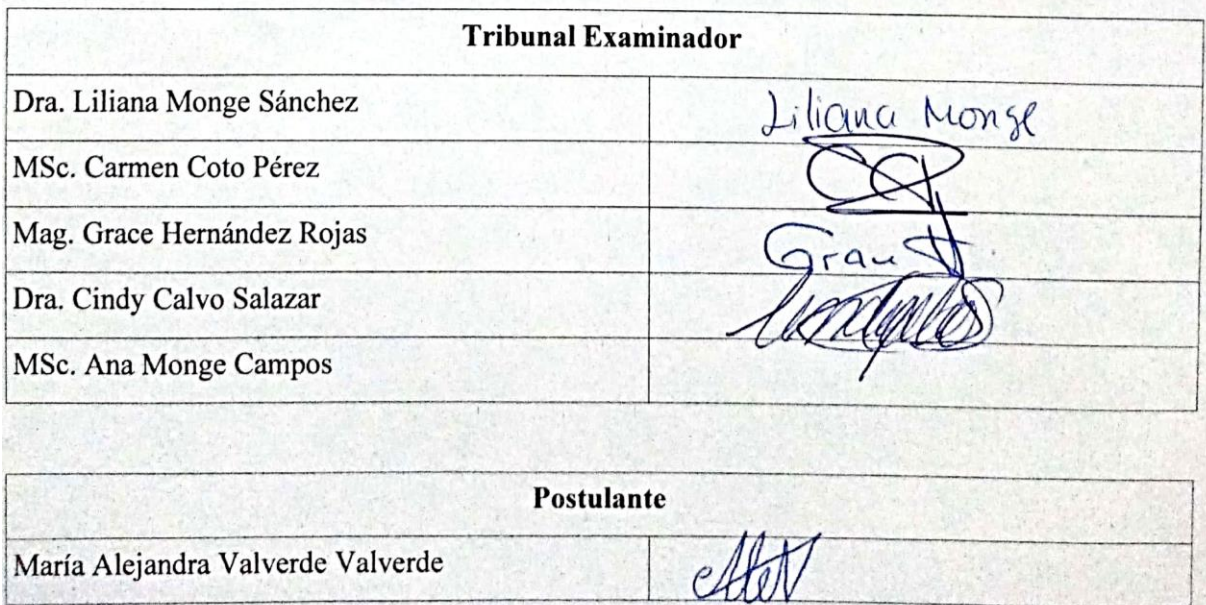 Tribunal Examinador
Dra. Liliana Monge Sánchez
Liliana Monge
MSc. Carmen Coto Pérez
Mag. Grace Hernández Rojas
Dra. Cindy Calvo Salazar
MSc. Ana Monge Campos
Postulante
María Alejandra Valverde Valverde